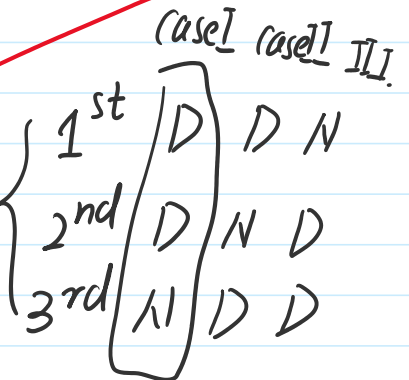 Case I Case II III.
1st D D N
2nd D N D
3rd N D D